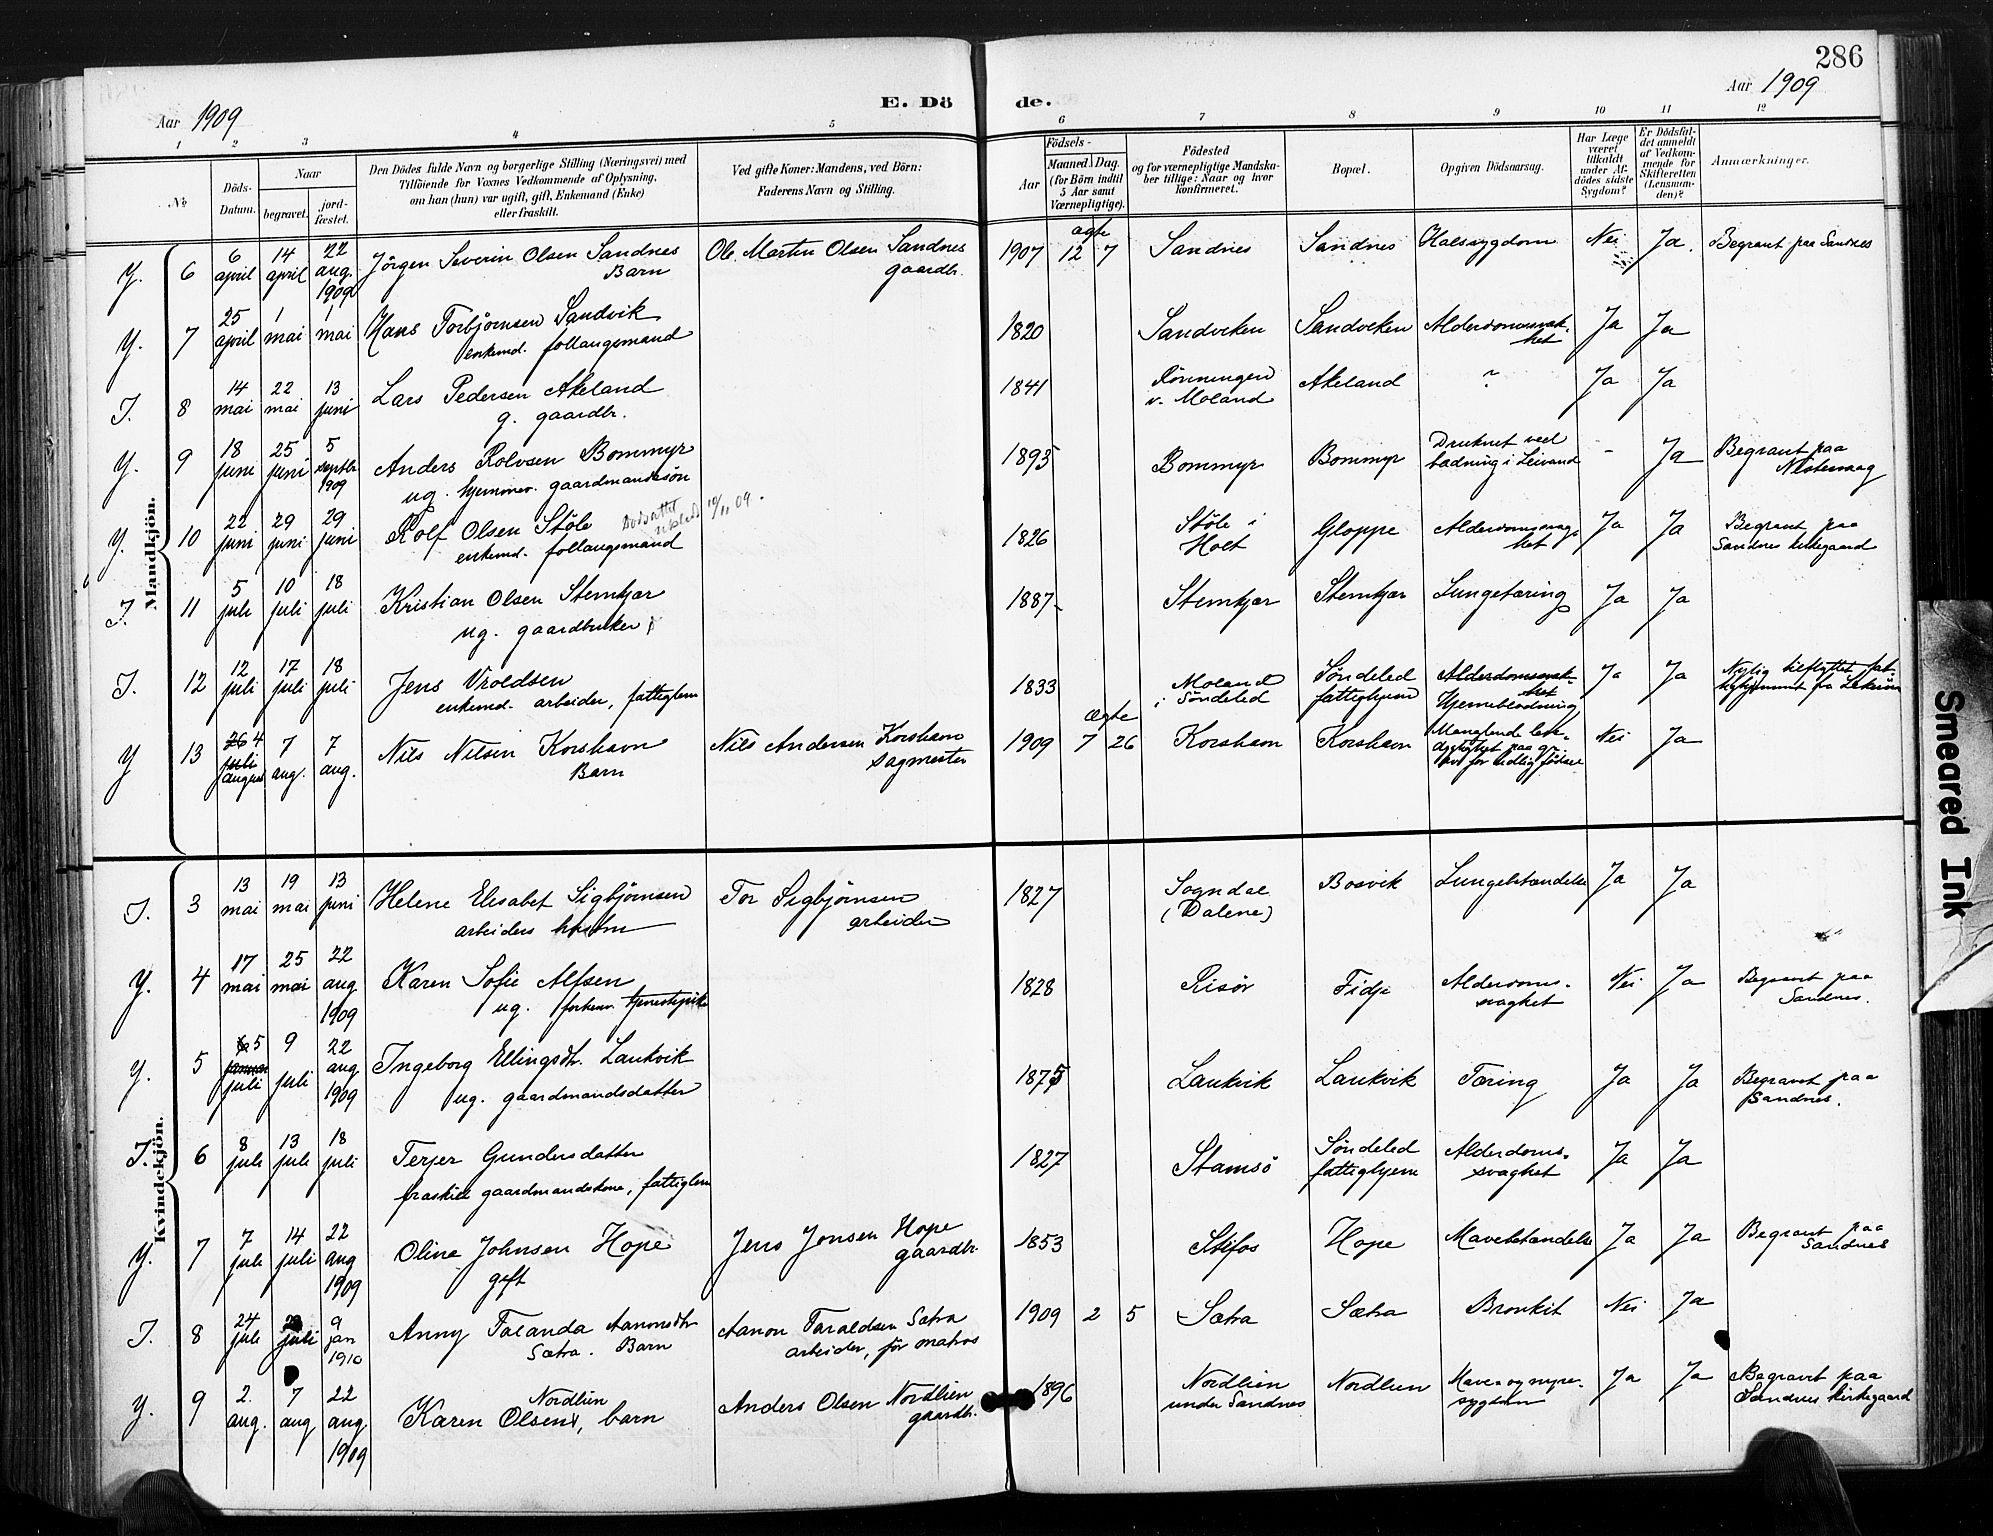 286
Aar 1909
E. Dö de.
Aar 1909
1 2 3 4 5 6 7 8 9 10 11 12
No
Döds-Datum.
Naar
begravet.
jord-fæstet.
Den Dödes fulde Navn og borgerlige Stilling (Næringsvei) med
Tilföiende for Voxnes Vedkommende af Oplysning,
om han (hun) var ugift, gift, Enkemand (Enke)
eller fraskilt.
Ved gifte Koner: Mandens, ved Börn:
Faderens Navn og Stilling.
Födsels-
Aar
Maaned. Dag.
(for Börn indtil
5 Aar samt
Værnepligtige).
Födested
og for værnepligtige Mandska-
ber tillige: Naar og hvor
konfirmeret.
Bopæl.
Opgiven Dödsaarsag.
Har Læge
været
tilkaldt
under Af-
dödes sidste
Sygdom?
Er Dödsfal-
det anmeldt
af Vedkom-
mende for
Skifteretten
(Lensman-
den)?
Anmærkninger.
Mandkjön.
Y. 6 6 april 14 april 22 aug. 1909 Jörgen Severin Olsen Sandnes Barn Ole Martin Olsen Sandnes gaardbr. 1907 ægte 12 7 Sandnes Sandnes Halssygdom Nei Ja. Begravet paa Sandnes
Y. 7 25 april 1 mai 1 mai Hans Torbjørnsen Sandvik enkemd. follaugsmand 1820 Sandviken Sandviken Alderdomssvak-het Ja Ja
I. 8 14 mai 22 mai 13 juni Lars Pedersen Akeland g. gaardbr. 1841 Rönningen v. Moland Akeland ? Ja Ja
Y. 9 18 juni 25 juni 5 septbr 1909 Anders Rolvsen Bommyr ug. hjemmev. gaardmandssön 1893 Bommyr Bommyr Druknet ved badning i Leivand - Ja Begravet paa
Y. 10 22 juni 29 juni 29 juni Rolf Olsen Stöle enkemd. follaugsmand 10/11 09. 1826 Stöle i Holt Gloppe Alderdomssvag-het Ja Ja Begravet paa Sandnes kirkegaard
I. 11 5 juli 10 juli 18 juli Kristian Olsen Stemkjær ug. gaardbruker 1887 Stemkjær Stemkjær Lungetæring Ja Ja
I. 12 12 juli 17 juli 18 juli Jens Vroldsen enkemd. arbeider, fattiglem 1833 Moland i Söndeled Söndeled fattighjem Alderdomssvak-het Hjerneblödning Ja Ja Nylig tilflyttet
Y 13 26 4 juli august 7 aug. 7 aug. Nils Nilsen Korshavn Barn Nils Andersen Korshavn sagmester 1909 ægte 7 26 Korshavn Korshavn Manglende levedygtighet paa gr. av for tidlig födsel Nei Ja
Kvindekjön.
I. 3 13 mai 19 mai 13 juni Helene Elisabet Sigbjörnsen arbeiders hustru Tor Sigbjörnsen arbeider 1827 Sogndal (Dalene) Bosvik Lungebetændelse Ja Ja
Y. 4 17 mai 25 mai 22 aug 1909 Karen Sofie Alfsen ug. forhenv. tjenestepike 1828 Risör Fidje Alderdoms-svaghet Nei Ja Begravet paa Sandnes.
Y. 5 5 januar juli 9 juli 22 aug 1909 Ingeborg Ellingsdtr. Laukvik ug. gaardmandsdatter 1875 Laukvik Laukvik Tæring Ja Ja Begravet paa Sandnes.
I. 6 8 juli 13 juli 18 juli Terjer Gundersdatter fraskilt gaardmandskone, fattiglem 1827 Stamsö Söndeled fattighjem Alderdoms-svaghet Ja Ja
Y. 7 7 juli 14 juli 22 aug 1909 Oline Johnsen Hope gift Jens Jonsen Hope gaardbr. 1853 Stifos Hope Mavebetændelse Ja Ja Begravet paa Sandnes
I. 8 24 juli juli 9 jan 1910 Anny Jolanda Aanonsdtr Sætra. Barn Aanon Taraldsen Sætra arbeider, för matros 1909 2 5 Sætra Sætra Bronkit Nei Ja
Y. 9 2. aug. 7 aug 22 aug 1909 Karen Olsen Nordlien, barn Anders Olsen Nordlien gaardbr. 1896 Nordlien under Sandnes Nordlien Mave og nyre-sygdom Ja Ja Begravet paa Sandnes kirkegaard
Smeared Ink